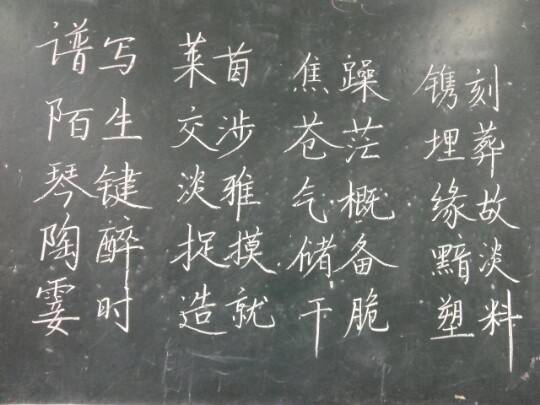 谱写 莱茵 焦躁 镌刻
陌生 交涉 苍茫 埋葬
琴键 淡雅 气概 缘故
陶醉 捉摸 储备 黯淡
霎时 造就 干脆 塑料